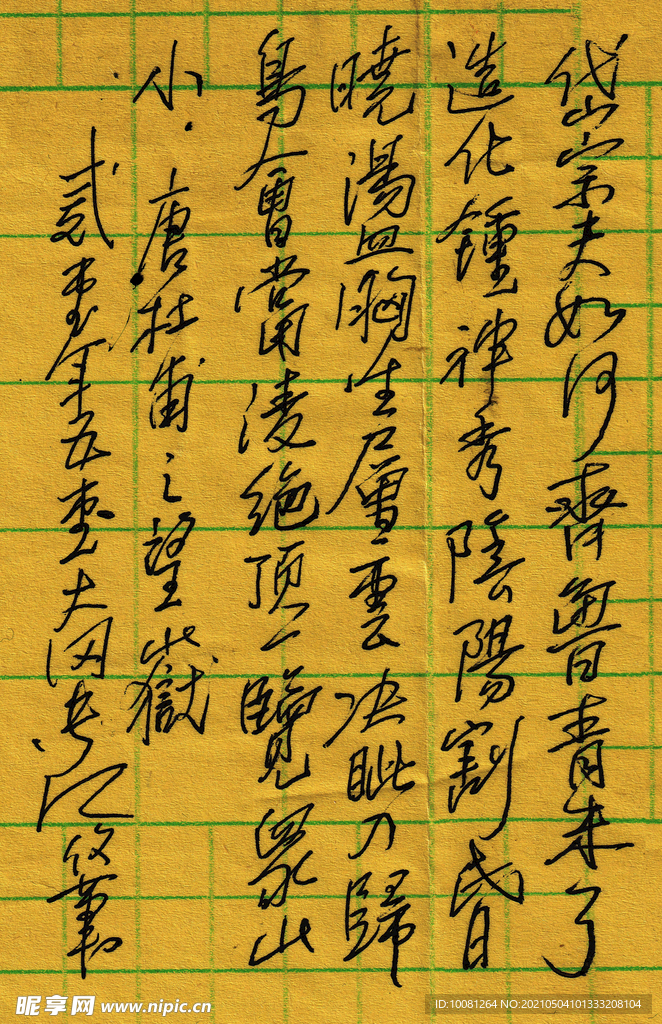 岱宗夫如何齊魯青未了
造化鍾神秀陰陽割昏
曉盪胸生層雲決眦入歸
鳥會當凌絕頂一覽眾山
小．唐杜甫之望嶽
年五
昵享网 www.nipic.cn
ID:10081264 NO:20210504101333208104